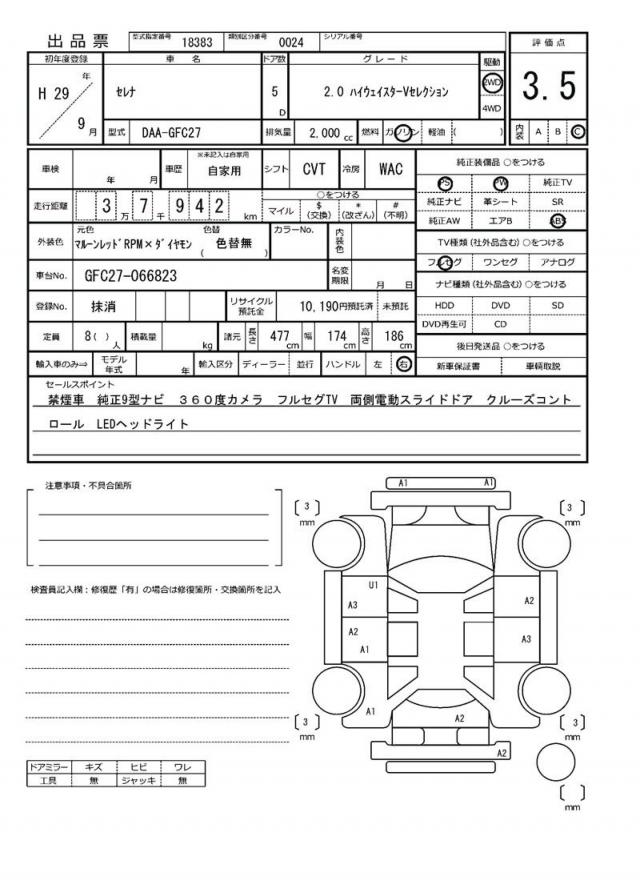 出品票 型式指定番号 18383 類別区分番号 0024 シリアル番号
初年度登録 車名 ドア数 グレード 駆動 評価点
H 29 年 9 月 セレナ 5 D 2.0 ハイウェイスターVセレクション 2WD 4WD 3.5
型式 DAA-GFC27 排気量 2,000 cc 燃料 ガソリン 軽油 ( ) 内装 A B C
車検 年 月 車歴 ※未記入は自家用 自家用 シフト CVT 冷房 WAC
純正装備品 ○をつける
PS PW 純正TV
純正ナビ 革シート SR
純正AW エアB ABS
走行距離 3 万 7 千 9 4 2 km ○をつける マイル $ (交換) * (改ざん) # (不明)
外装色 元色 マルーンレッドRPM×ダイヤモン 色替 ( 色替無 ) カラーNo. 内装色
TV種類 (社外品含む) ○をつける
フルセグ ワンセグ アナログ
車台No. GFC27-066823 名変期限 月 日
ナビ種類 (社外品含む) ○をつける
HDD DVD SD
DVD再生可 CD
登録No. 抹消 リサイクル預託金 10,190円預託済 未預託
定員 8( ) 人 積載量 kg 諸元 長さ 477 cm 幅 174 cm 高さ 186 cm
後日発送品 ○をつける
新車保証書 車輌取説
輸入車のみ⇒ モデル年式 年 輸入区分 ディーラー 並行 ハンドル 左 右
セールスポイント
禁煙車 純正9型ナビ 360度カメラ フルセグTV 両側電動スライドドア クルーズコント
ロール LEDヘッドライト
注意事項・不具合箇所
検査員記入欄:修復歴「有」の場合は修復箇所・交換箇所を記入
A1 A1
3 mm
3 mm
U1
A3 A2
A2 A3
A1
A1 A2
3 mm
3 mm
A2
mm
ドアミラー キズ ヒビ ワレ
工具 無 ジャッキ 無